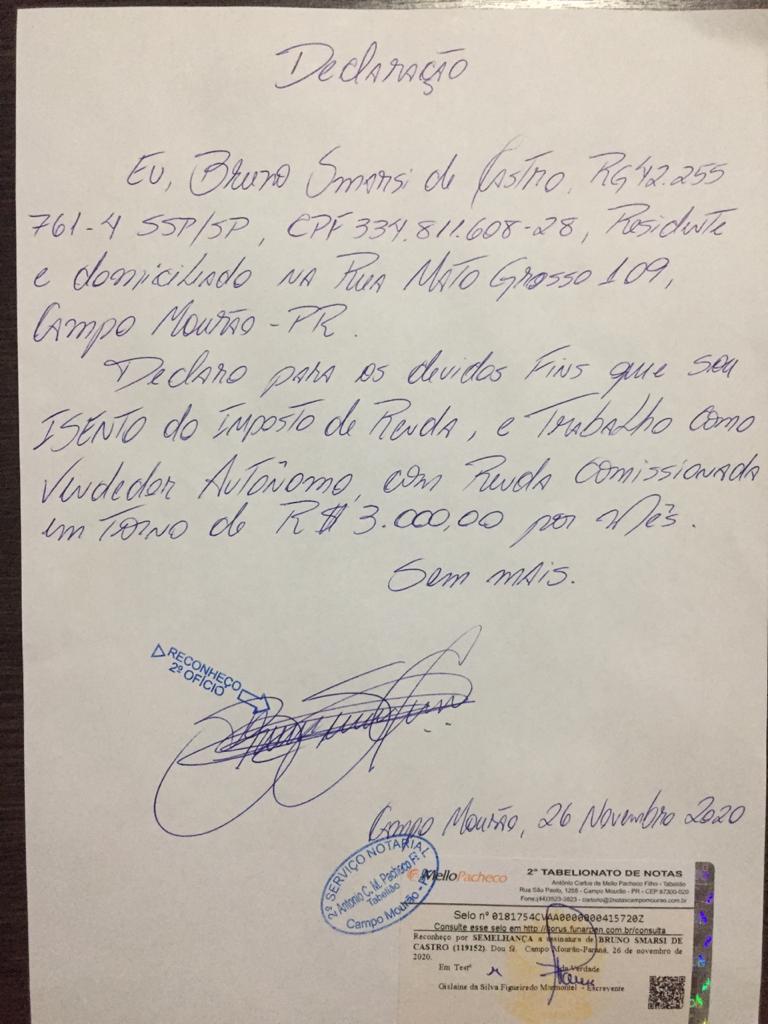 Declaração
Eu, Bruno Smarsi de Castro, RG 42.255
761-4 SSP/SP, CPF 334.811.608-28, Residente
e domiciliado na Rua Mato Grosso 109,
Campo Mourão - PR.
Declaro para os devidos fins que sou
ISENTO do Imposto de Renda, e Trabalho como
Vendedor Autônomo, com Renda comissionada
em torno de R$ 3.000,00 por mês.
Sem mais.
RECONHEÇO
2º OFÍCIO
Campo Mourão, 26 Novembro 2020
2º SERVIÇO NOTARIAL
Antonio C. M. Pacheco Fº
Tabelião
Campo Mourão -
MelloPacheco
2º TABELIONATO DE NOTAS
Antônio Carlos de Mello Pacheco Filho - Tabelião
Rua São Paulo, 1258 - Campo Mourão - PR - CEP 87300-020
Fone:(44)3523-3823 - cartorio@2notascampomourao.com.br
Selo nº 0181754CVAA0000000415720Z
Consulte esse selo em http://horus.funarpen.com.br/consulta
Reconheço por SEMELHANÇA a assinatura de BRUNO SMARSI DE
CASTRO (119152). Dou fé. Campo Mourão-Paraná, 26 de novembro de
2020.
Em Testº da Verdade
Gislaine da Silva Figueiredo - Escrevente